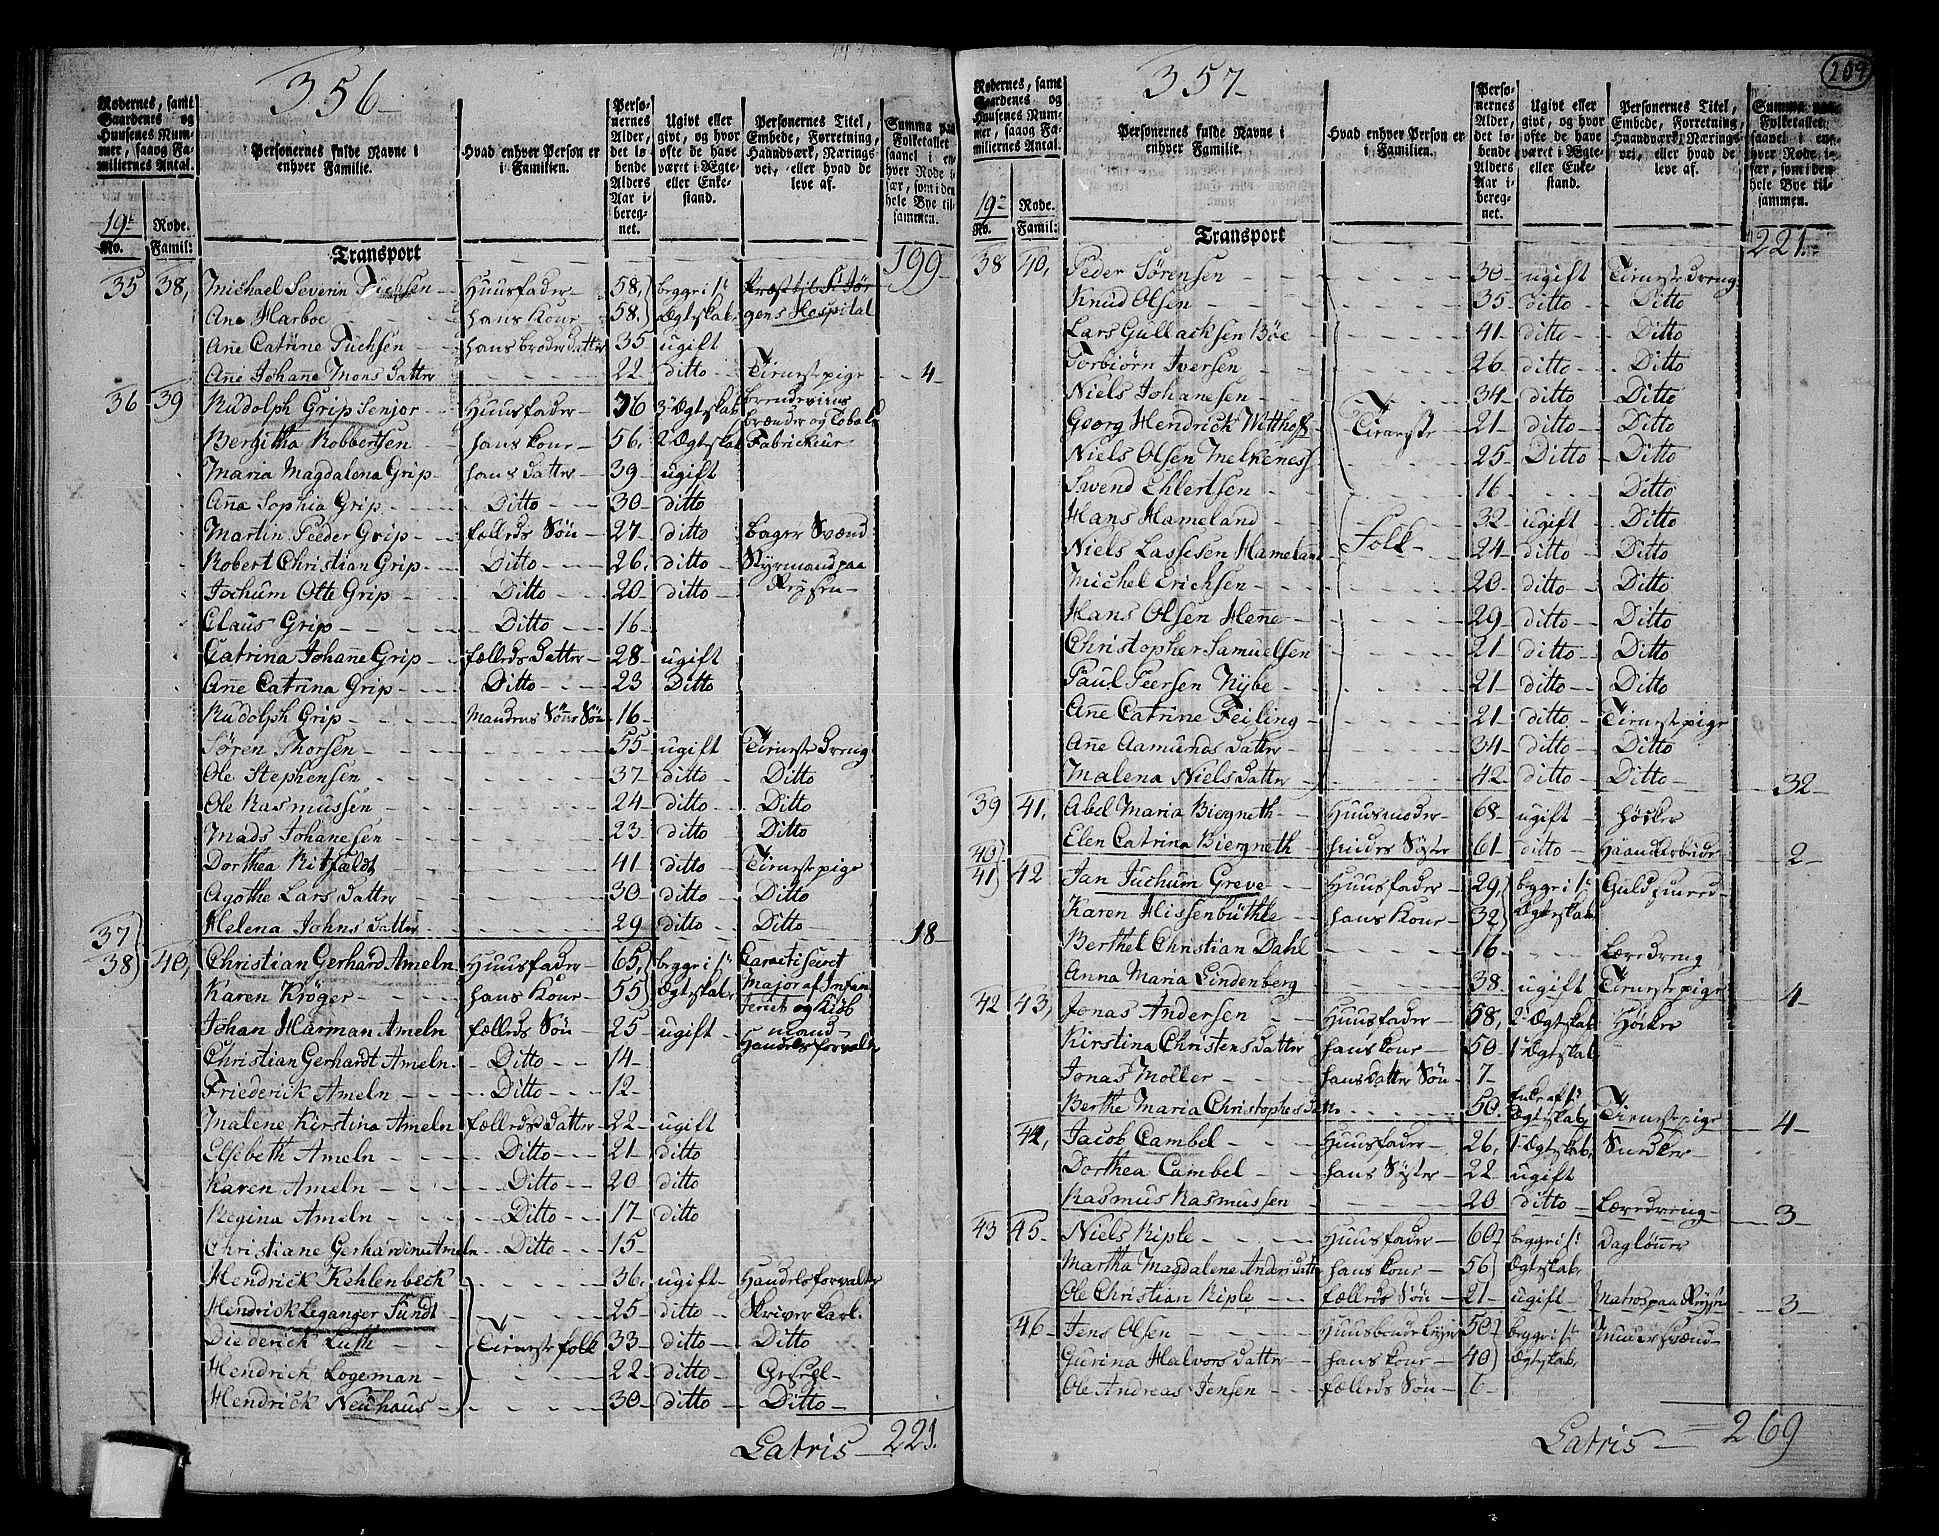 356
Rodernes, samt Gaardenes og Huusenes Nummer, saavog Familiernes Antal.
Personernes fulde Navne i enhver Familie.
Hvad enhver Person er i Familien.
Personernes Alder, det løbende Alders Aar iberegnet.
Ugivt eller givt, og hvor ofte de have været i Ægte- eller Enkestand.
Personernes Titel, Embede, Forretning, Haandværk, Næringsvei, eller hvad de leve af.
Summa paa Folketallet saavel i enhver Rode især, som i den hele Bye tilsammen.
19de Rode.
No. Famil:
Transport 199
35 38, Michael Severin Tuchsen Huusfader 58, begge i 1t Præst til St Jør
Ane Harboe hans Kone 58, Ægteskab, gens Hospital
Añe Catrine Tuchsen hans broder datter 35 ugift
Añe Johañe Mons datter 22 ditto Tienestepige 4
36 39 Rudolph Grip Senior Huusfader 76 3 Ægteskab Brendeviins
Bergitha Robbertsen hans kone 56, 2 Ægteskab brænder og Tobaks Fabrickeur
Maria Magdalena Grip hans datter 39 ugift
Aña Sophia Grip Ditto 30 ditto
Martin Peeder Grip fælleds Søn 27 ditto bager Svend
Robert Christian Grip Ditto 26, ditto Styrmand paa
Jochum Otte Grip Ditto 20 ditto Reysen
Claus Grip Ditto 16
Catrina Johañe Grip fælleds datter 28 ugift
Añe Catrina Grip Ditto 23 Ditto
Rudolph Grip Mandens Sönne Søn 16
Søren Thorsen 55 ugift Tienestedreng
Ole Stephensen 37 ditto Ditto
Ole Rasmussen 24 ditto Ditto
Mads Johanesen 23 ditto Ditto
Dorthea Ritzfeldt 41 ditto Tienestepige
Agothe Lars datter 30 ditto Ditto
Helena Johns datter 29 ditto Ditto 18
37
38 40, Christian Gerhard Ameln Huusfader 65, begge i 1t
Karen Kröger hans Kone 55 Ægteskab, Major af Infan
Johan Harman Ameln fælleds Søn 25 ugift
Christian Gerhardt Ameln Ditto 14 Handelsforvalter
Friederick Ameln Ditto 12
Malene Kirstina Ameln fælleds datter 22 ugift
Elsebeth Ameln Ditto 21 ditto
Karen Ameln Ditto 20 ditto
Regina Ameln Ditto 17 ditto
Christiane Gerhardine Ameln Ditto 15
Hendrick Kehlenbeck 36, ugift Handelsforvalter
Hendrick Leganger Fundt 25 ditto Skriver karl
Diederick Lush Tieneste folk 33 ditto Ditto
Hendrick Logeman 22 ditto Gesel
Hendrick Neuhaus 30 ditto Ditto
Latris 221.
357
204
Rodernes, samt Gaardenes og Huusenes Nummer, saavog Familiernes Antal.
Personernes fulde Navne i enhver Familie.
Hvad enhver Person er i Familien.
Personernes Alder, det løbende Alders Aar iberegnet.
Ugivt eller givt, og hvor ofte de have været i Ægte- eller Enkestand.
Personernes Titel, Embede, Forretning, Haandværk, Næringsvei, eller hvad de leve af.
Summa paa Folketallet saavel i enhver Rode især, som i den hele Bye tilsammen.
19de Rode.
No. Famil:
Transport 221.
38 40, Peder Sörensen 30 ugift Tienestedreng
Knud Olsen 35 ditto Ditto
Lars Gullacksen Böe 41 ditto Ditto
Torbiörn Iversen 26 ditto Ditto
Niels Johanesen 34 ditto Ditto
Georg Hendrick Witthoff Tieneste 21 ditto Ditto
Niels Olsen Melkeness 25 Ditto Ditto
Swend Ehlertsen 16 Ditto
Hans Hameland 32 ugift Ditto
Niels Lassesen Hameland Folk 24 ditto Ditto
Michel Ericksen 20 ditto Ditto
Hans Olsen Heñe 29 ditto Ditto
Christopher Samuelsen 21 ditto Ditto
Paul Peersen Nybe 21 ditto Ditto
Añe Catrine Feiling 21 ditto Tienestepige
Añe Aamunds datter 34 ditto Ditto
Malena Niels datter 42 ditto Ditto 32
39 41, Abel Maria Biergneth Huusmoder 68 ugift Höcker
Elen Catrina Biergneth hendes Søster 61 ditto Haandarbeide 2
40
41 42 Jan Juchum Greve Huusfader 29, begge i 1t Guldsmed
Karen Hissenbüthle hans Kone 32 Ægteskab,
Berthel Christian Dahl 16 Læredreng
Anna Maria Lindenberg 38 ugift Tienestepige 4
42 43, Jonas Andersen Huusfader 58, 2 Ægteskab Höcker
Kirstina Christens datter hans kone 50 1 Ægteskab,
Jonas Möller hans datter Søn 7
Berthe Maria Christophes datter 50 Enke af 1t Ægteskab, Tienestepige 4
44, Jacob Cambel Huusfader 26, 1 Ægteskab, Snedker
Dorthea Cambel hans Søster 22 ugift
Rasmus Rasmussen 20 ditto Læredreng 3
43 45 Niels Riple Huusfader 60 begge i 1t daglönner
Martha Magdalene Anders datter hans kone 56 Ægteskab,
Ole Christian Riple fælleds Søn 21 ugift Matros paa Reyse 3
46 Jens Olsen 50 begge i 1t
Gurina Halvors datter hans kone 40 Ægteskab,
Ole Andreas Jensen fælleds Søn 6
Latris 269